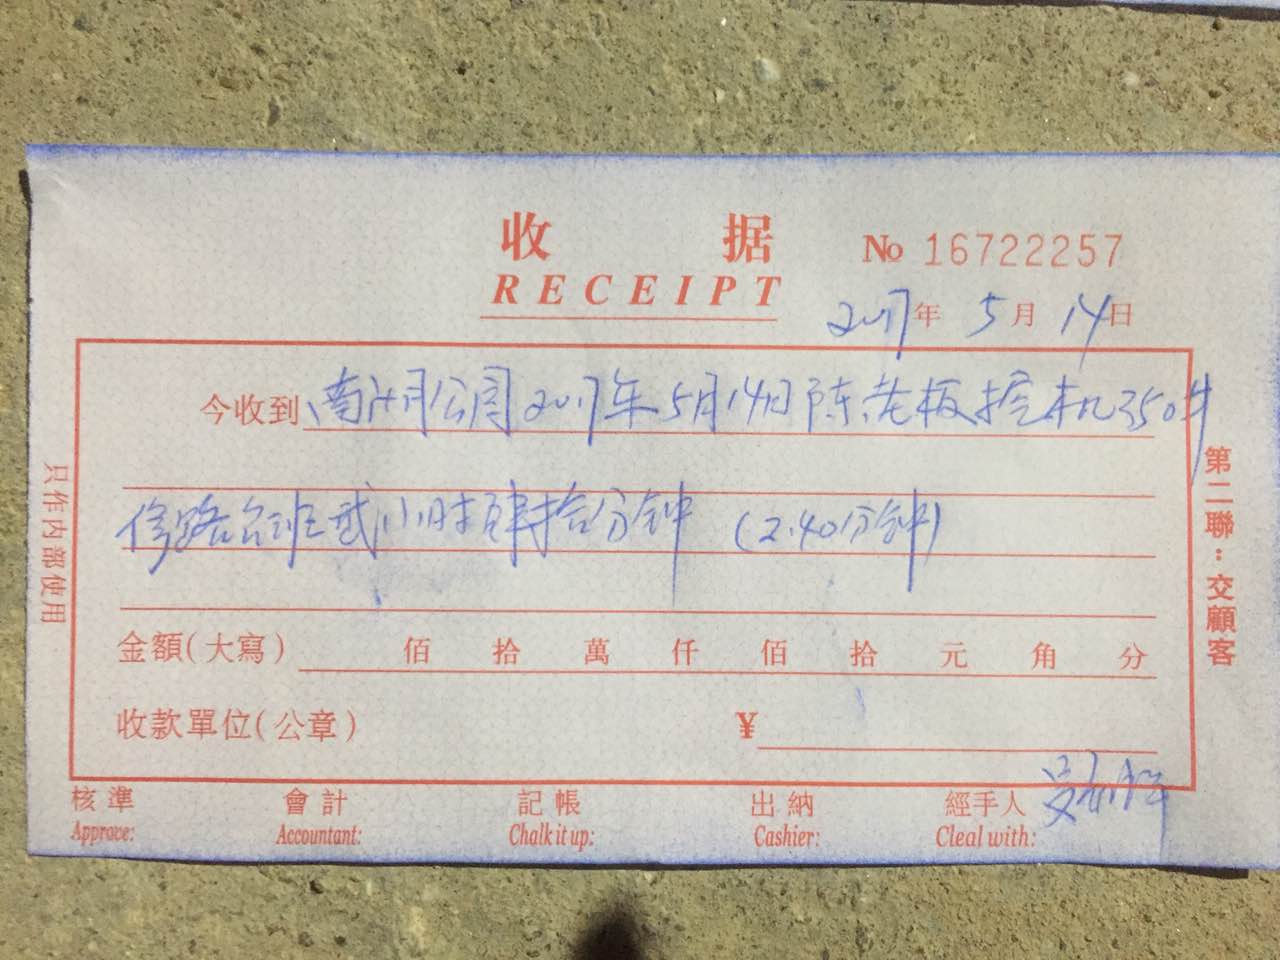 收 据
RECEIPT
№ 16722257
2017年 5月 14日
今收到 南月公司2017年5月14日陈老板挖机350
修路台班贰小时肆拾分钟 (2.40分钟)
金額(大寫) 佰 拾 萬 仟 佰 拾 元 角 分
收款單位(公章) ¥
核準 會計 記帳 出納 經手人
Approve: Accountant: Chalk it up: Cashier: Cleal with:
只作内部使用
第二聯：交顧客